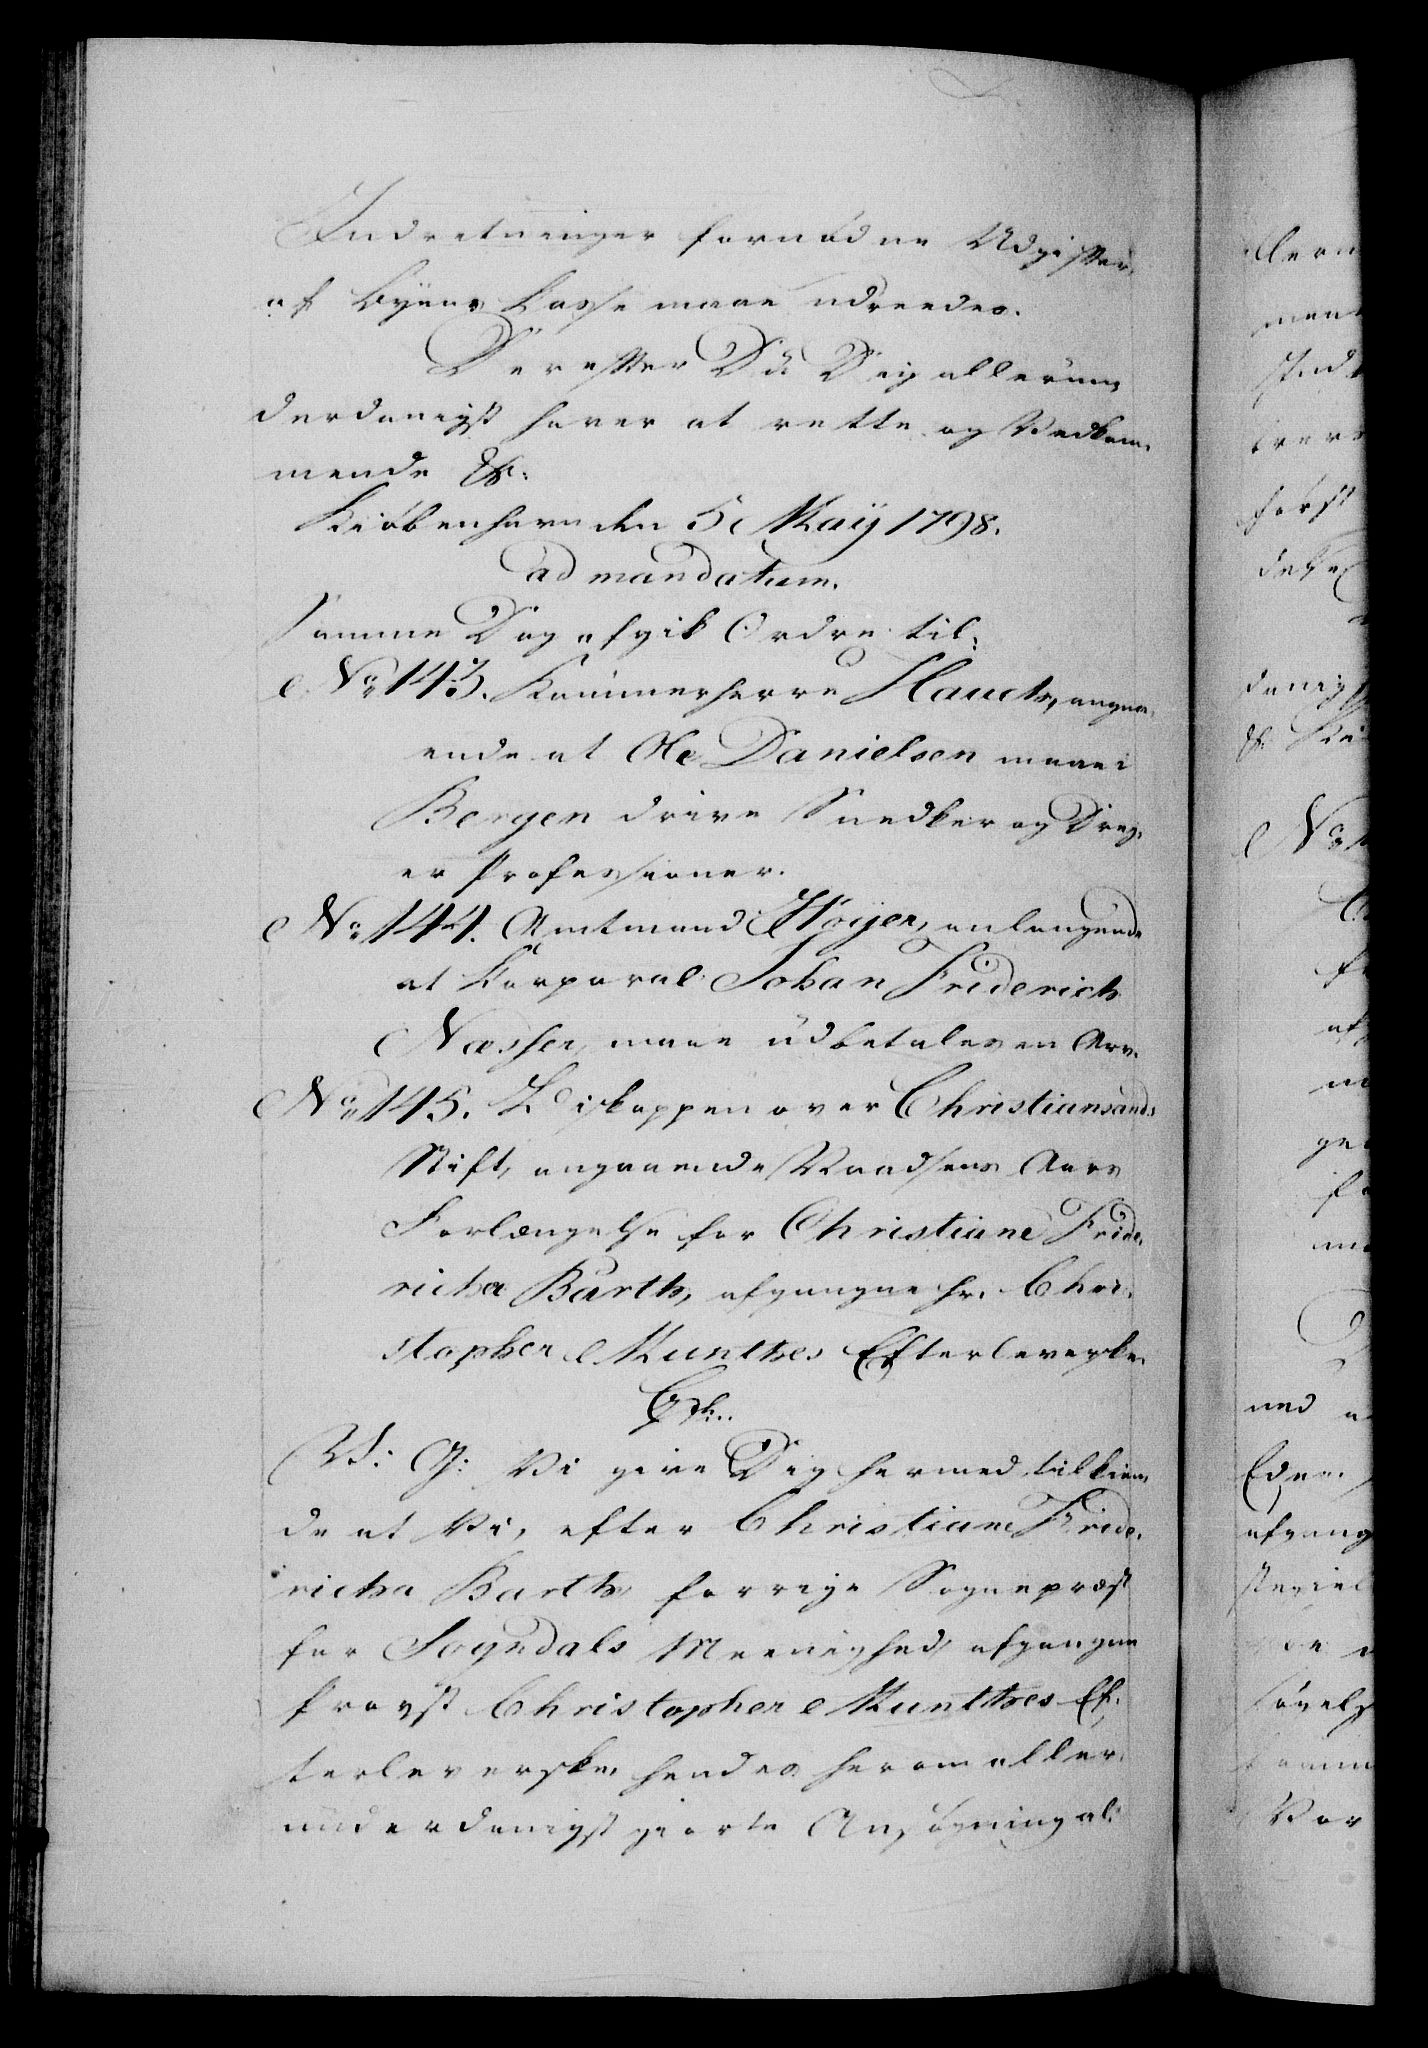 Indretninger fornødne Udgifter,
af Byens Casse maae udreedes.
Derefter Du Dig allerun,
derdanigst haver at rette og Vedkom,
mende &c:
Kiøbenhavn den 5 Maij 1798.
ad mandatum.
Samme Dag afgik Ordre til:
No 143. Kammerherre Hauch, angaa,
ende at Ole Danielsen maae i
Bergen drive Snedker og Drey,
er Professioner.
No 144. Amtmand Høyer, anlangende
at Korporal Johan Friderich
Næsser, maae udbetales en Arv.
No 145. Biskoppen over Christiansands
Stift, angaaende Naadsens Aars
Forlængelse for Christiane Fride,
richa Barth, afgangne Hr. Chri,
stopher Munthes Efterleverske.
C 7de.
V: G: Vi give Dig hermed tilkien,
de at Vi, efter Christiane Fride,
richa Barth, forrige Sognepræst
for Sogndals Meenighed, afgangne
Provst Christopher Munthes Ef,
terleverske, hendes herom aller,
underdanigst giorte Ansøgning al,